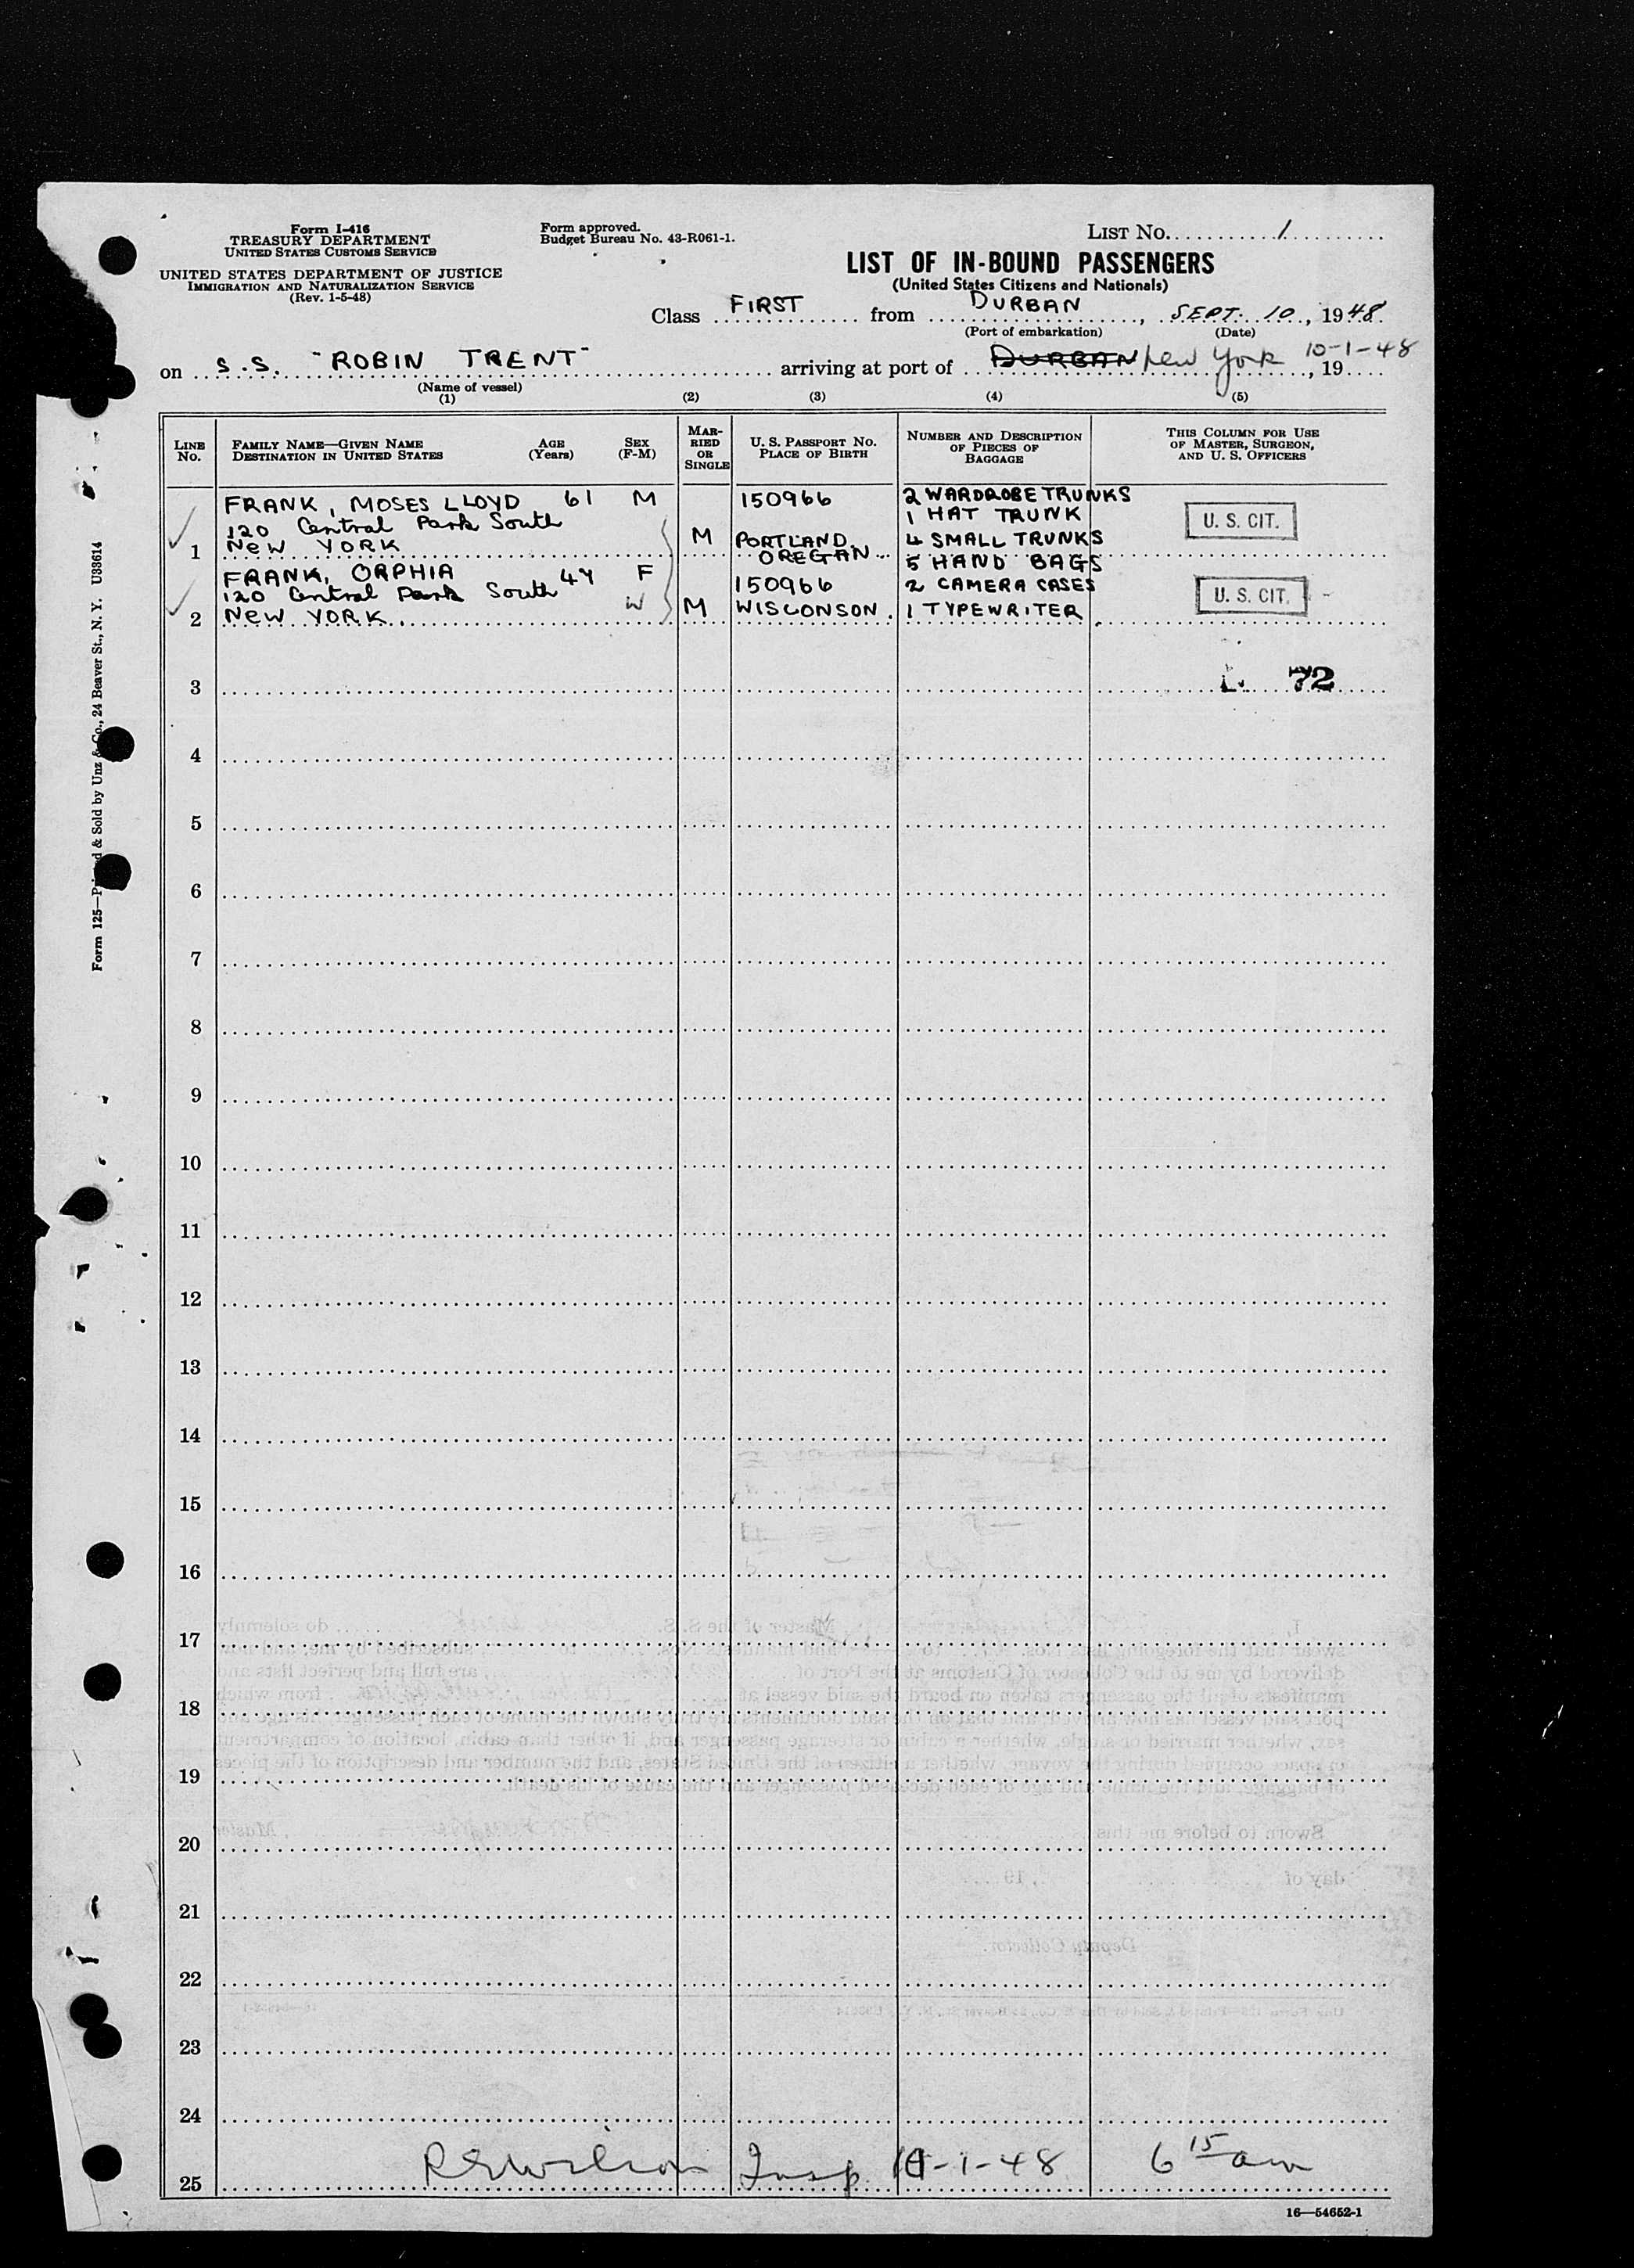 Form I-416
TREASURY DEPARTMENT
UNITED STATES CUSTOMS SERVICE
UNITED STATES DEPARTMENT OF JUSTICE
IMMIGRATION AND NATURALIZATION SERVICE
(Rev. 1-5-48)
Form approved.
Budget Bureau No. 43-R061-1.
LIST No. 1
LIST OF IN-BOUND PASSENGERS
(United States Citizens and Nationals)
Class FIRST from DURBAN, SEPT. 10, 1948
(Port of embarkation) (Date)
on S.S. "ROBIN TRENT" arriving at port of DURBAN New York 10-1-48, 19
(Name of vessel)
(1) (2) (3) (4) (5)
LINE No.
FAMILY NAME—GIVEN NAME
DESTINATION IN UNITED STATES
AGE (Years)
SEX (F-M)
MARRIED OR SINGLE
U. S. PASSPORT NO.
PLACE OF BIRTH
NUMBER AND DESCRIPTION
OF PIECES OF
BAGGAGE
THIS COLUMN FOR USE
OF MASTER, SURGEON,
AND U. S. OFFICERS
FRANK, MOSES LLOYD 61 M 150966 2 WARDROBE TRUNKS
120 Central Park South 1 HAT TRUNK U. S. CIT.
1 NEW YORK M PORTLAND 4 SMALL TRUNKS
OREGAN 5 HAND BAGS
FRANK, ORPHIA 44 F
120 Central Park South 150966 2 CAMERA CASES U. S. CIT.
2 NEW YORK. W M WISCONSON. 1 TYPEWRITER
3 72
4
5
6
7
8
9
10
11
12
13
14
15
16
17
18
19
20
21
22
23
24
25 Insp. 10-1-48 6 15 am
16—54652-1
Form 125—Printed & Sold by Unz & Co., 24 Beaver St., N. Y. U33614